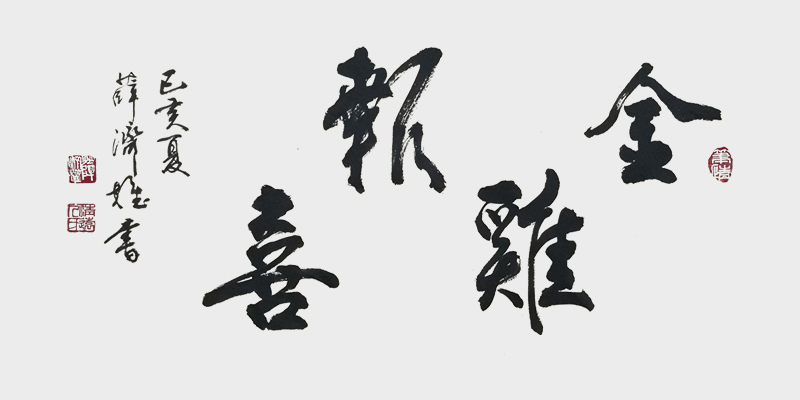 金雞報喜
己亥夏
薛濟雄書